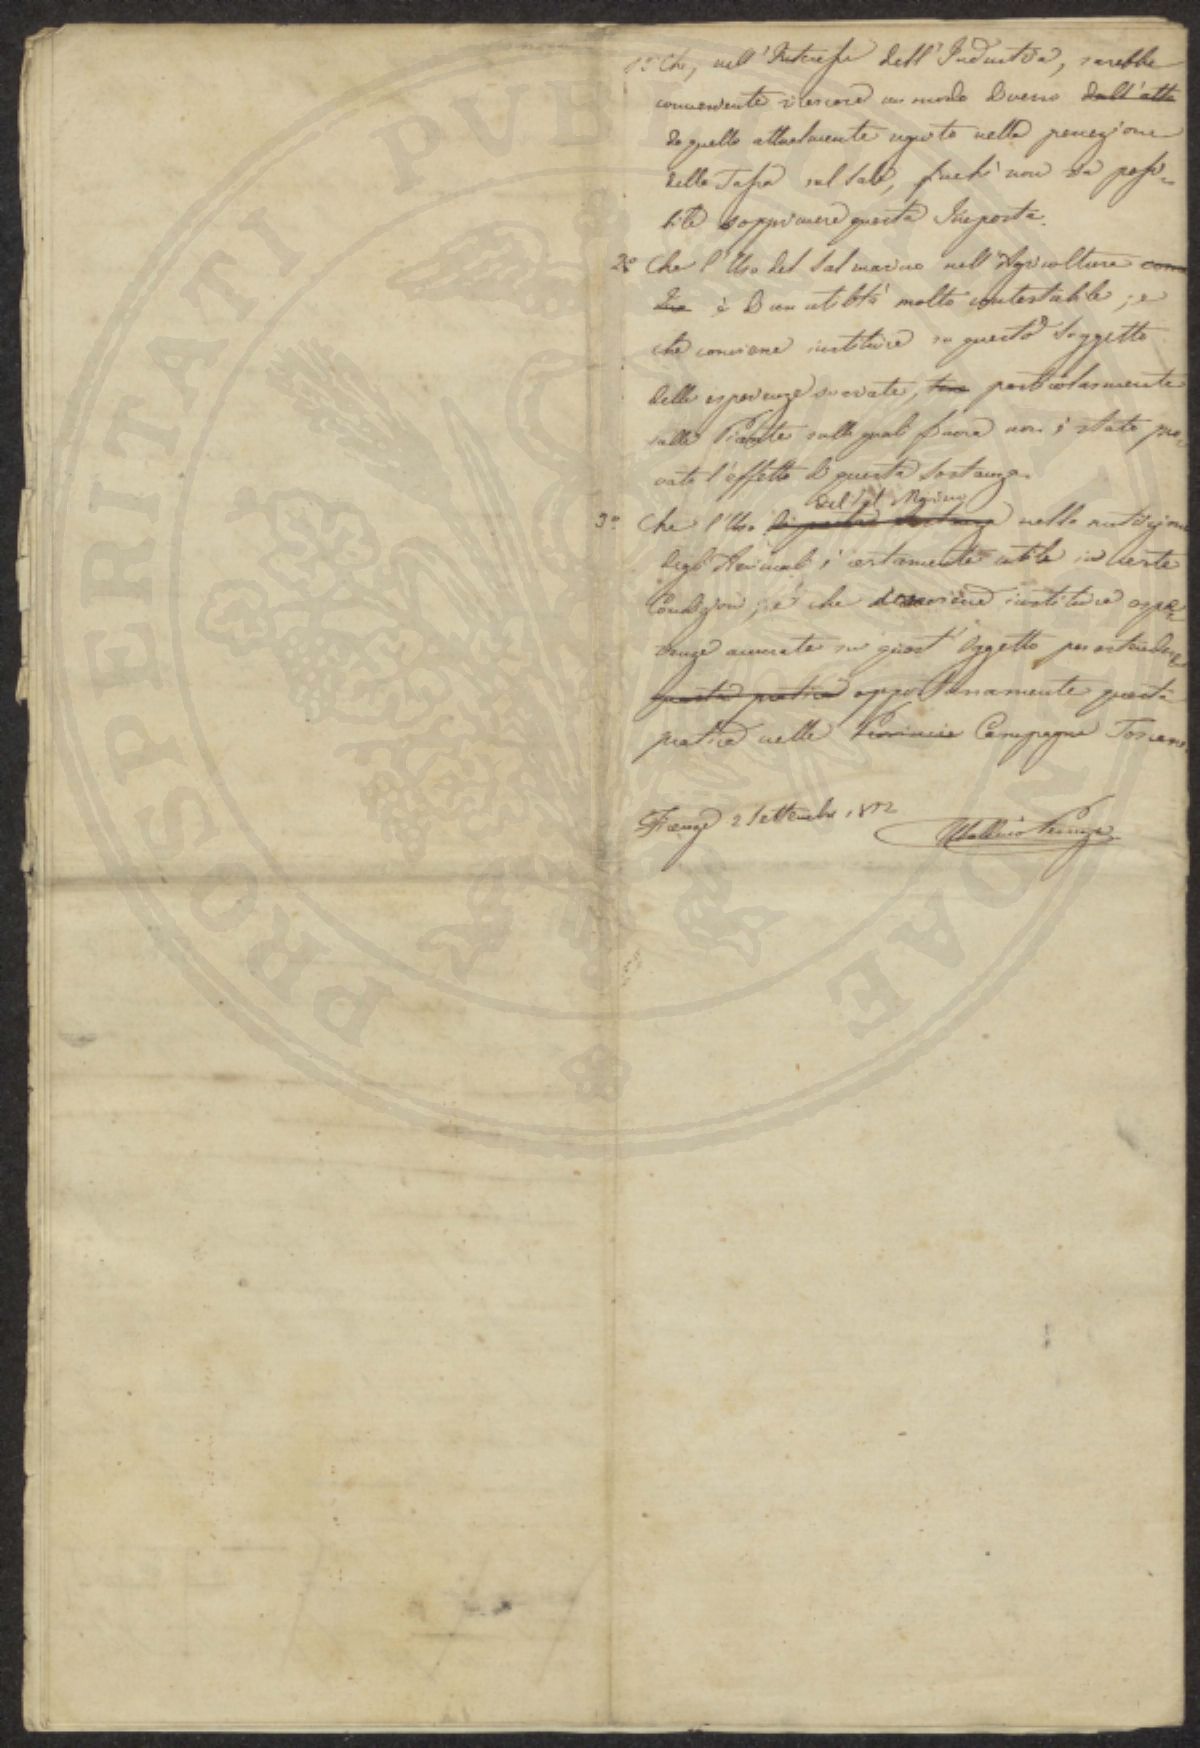 1º Che, nell'Interesse dell'Industria, sarebbe
conveniente riescere un modo diverso dall'atto
da quello attualmente seguito nella percezione
della Tassa sul Sale, finchè non sia possi-
bile sopprimere questa Imposta.
2º Che l'Uso del Sal marino nell'Agricoltura
è di un utilità molto contestabile; e
che conviene instituire su questo Soggetto
delle esperienze svariate, particolarmente
sulle Piante sulle quali finora non è stato pro-
vato l'effetto di questa Sostanza.
del Sal Marino
3º Che l'Uso di questa Sostanza nella nutrizione
degli Animali è certamente utile in certe
Condizioni; e che conviene instituire espe-
rienze accurate su quest'Oggetto per estendere
questa pratica opportunamente questa
pratica nelle Provincie Campagne Toscane.
Firenze 2 Settembre
Peruzzi
PROSPERITATI PVBLICAE